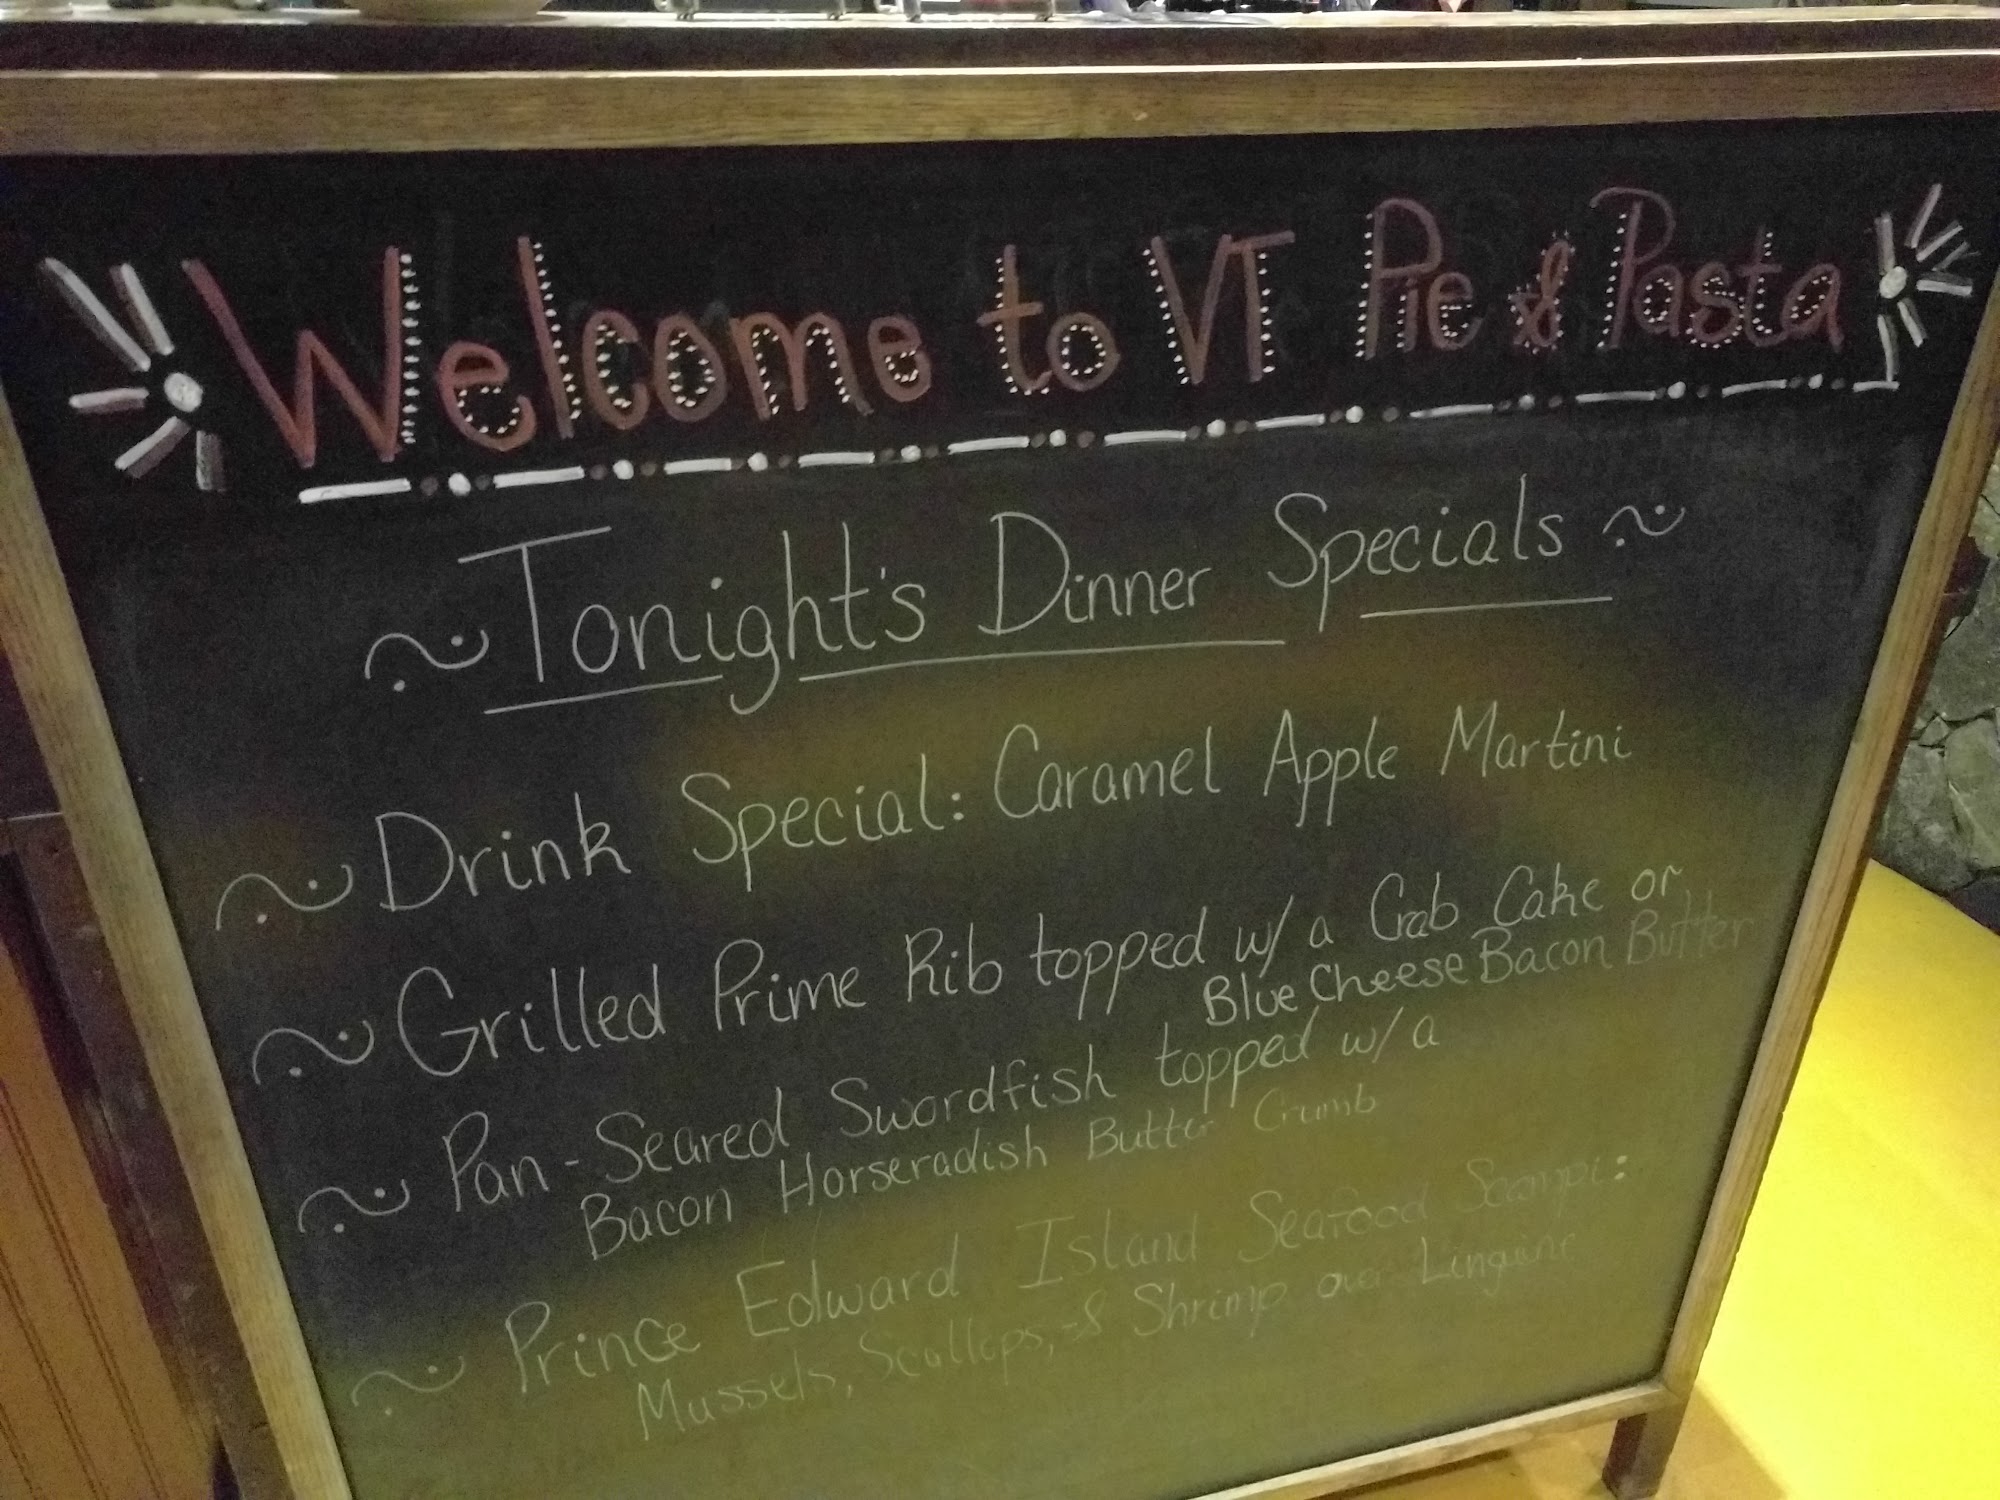 Welcome to VT Pie & Pasta
Tonight's Dinner Specials
Drink Special: Caramel Apple Martini
Grilled Prime Rib topped w/ a Crab Cake or
Blue Cheese Bacon Butter
Pan-Seared Swordfish topped w/ a
Bacon Horseradish Butter Crumb
Prince Edward Island Seafood Scampi:
Mussels, Scallops, & Shrimp over Linguine